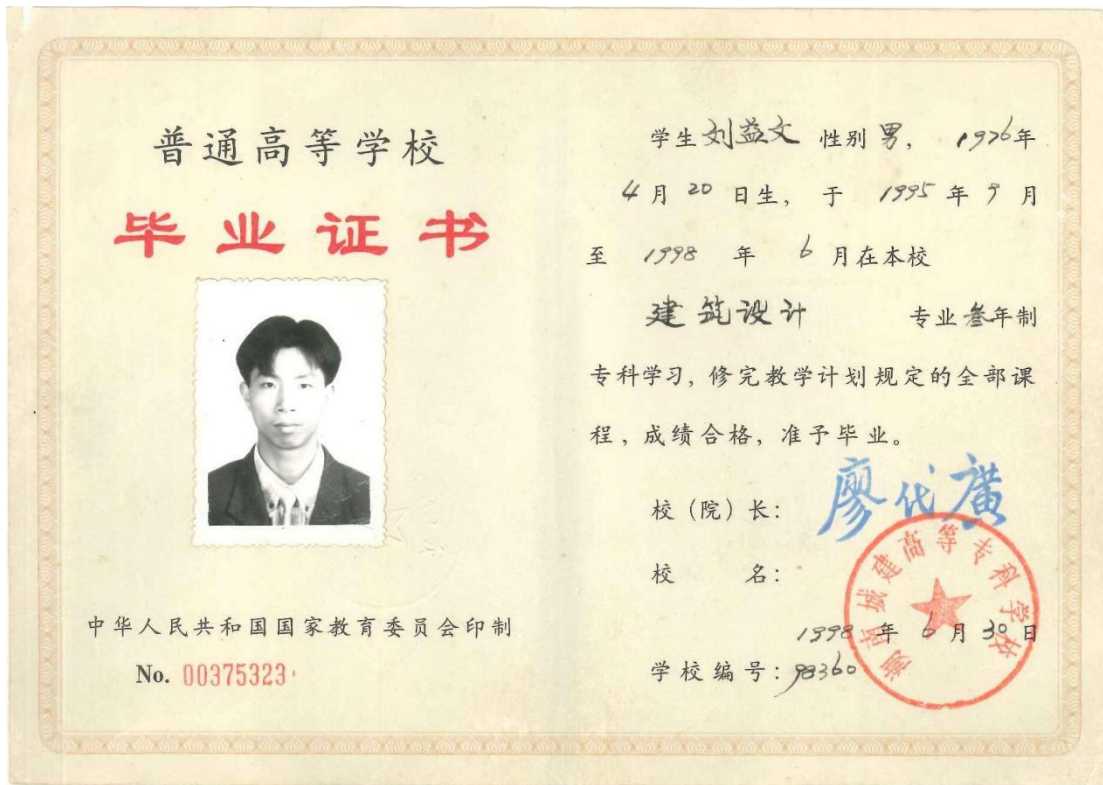 普通高等学校
毕业证书
中华人民共和国国家教育委员会印制
No. 00375323
学生 刘益文 性别 男， 1976年
4月 20 日生， 于 1995 年 9 月
至 1998 年 6 月在本校
建筑设计 专业 叁年制
专科学习，修完教学计划规定的全部课
程，成绩合格，准予毕业。
校（院）长： 廖代广
校 名：
湖南城建高等专科学校
1998 年 6 月 30 日
学校编号：98360